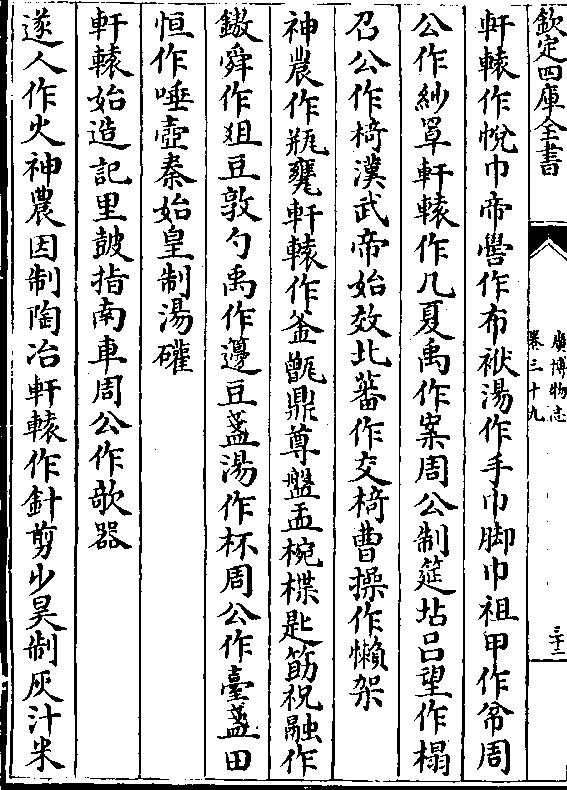 欽定四庫全書
廣博物志
卷三十九
三十二
軒轅作帨巾帝嚳作布袱湯作手巾脚巾祖甲作帘周
公作紗罩軒轅作几夏禹作案周公制筵坫呂望作榻
召公作椅漢武帝始效北蕃作交椅曹操作懶架
神農作瓶甕軒轅作釜甑鼎尊盤盂椀楪匙筯祝融作
鏊舜作俎豆敦勺禹作籩豆盞湯作杯周公作臺盞田
恒作唾壺秦始皇制湯礶
軒轅始造記里鼓指南車周公作欹器
遂人作火神農因制陶冶軒轅作針剪少昊制灰汁米